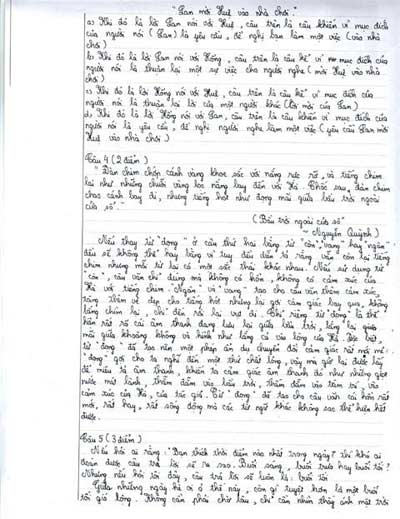 "Lan mời Huệ vào nhà chơi."
a) Khi đó là lời Lan nói với Huệ, câu trên là câu khiến vì mục đích
của người nói (Lan) là yêu cầu, đề nghị bạn làm một việc (vào nhà
chơi)
b) Khi đó là lời Lan nói với Hồng, câu trên là câu kể vì mục đích của
người nói là thuật lại một sự việc cho người nghe (mời Huệ vào nhà
chơi)
c) Khi đó là lời Hồng nói với Huệ, câu trên là câu kể vì mục đích của
người nói là thuật lại lời của một người khác (lời mời của Lan)
d) Khi đó là lời Hồng nói với Lan, câu trên là câu khiến vì mục đích của
người nói là yêu cầu, đề nghị người nghe làm một việc (yêu cầu Lan mời
Huệ vào nhà chơi)
Câu 4 (2 điểm)
"Đàn chim chớp cánh vàng khoe sắc với nắng rực rỡ, và tiếng chim
lại như những chuỗi vàng lọc nắng bay đến với Hà. Chốc sau, đàn chim
chao cánh bay đi, nhưng tiếng hót như đọng mãi giữa bầu trời ngoài
cửa sổ".
(Bầu trời ngoài cửa sổ)
~ Nguyễn Quỳnh ~
Nếu thay từ "đọng" ở câu thứ hai bằng từ "còn", "vang" hay "ngân"
đều sẽ không thể hay bằng vì tuy đều diễn tả rằng vẫn còn lại tiếng
chim nhưng mỗi từ lại có một sắc thái khác nhau. Nếu sử dụng từ
"còn", câu văn chỉ đúng mà không có hồn, không có cảm xúc của
Hà với tiếng chim. "Ngân" và "vang" tạo cho câu văn thêm cảm xúc,
tăng thêm vẻ đẹp cho tiếng hót nhưng lại gợi cảm giác bay qua, không
lắng chìm lại, chỉ đến rồi lại vụt đi. Chỉ riêng từ "đọng" là thể
hiện rất rõ cái âm thanh đang lưu lại giữa bầu trời, lắng lại giữa
mãi giữa khoảng không và hình như lắng cả vào lòng của Hà. Đặc biệt,
từ "đọng" đã tạo nên một phép ẩn dụ chuyển đổi cảm giác rất mới mẻ.
"đọng" gợi cho ta nghĩ đến một thứ chất lỏng, vậy mà giờ lại được lấy
để miêu tả âm thanh, khiến ta cảm giác âm thanh đó như những giọt
nước mát lành, thấm đẫm vào bầu trời, thấm đẫm vào tâm trí, vào
cảm xúc của Hà, của tác giả. Từ "đọng" đã tạo cho câu văn cái hồn rất
mới, rất hay, rất sống động mà các từ ngữ khác không sao thể hiện hết
được.
Câu 5 (3 điểm)
Nếu hỏi ai rằng: "Bạn thích thời điểm nào nhất trong ngày?" thì khó ai
đoán được câu trả lời sẽ ra sao. Buổi sáng, buổi trưa hay buổi tối?
Nhưng nếu hỏi tôi đây, câu trả lời sẽ luôn là: buổi tối.
Giữa những ngày hè oi ả thế này, còn gì tuyệt hơn là một buổi
tối gió lộng. Không cần phải chờ lâu, chỉ cần nhìn thấy ánh mặt trời